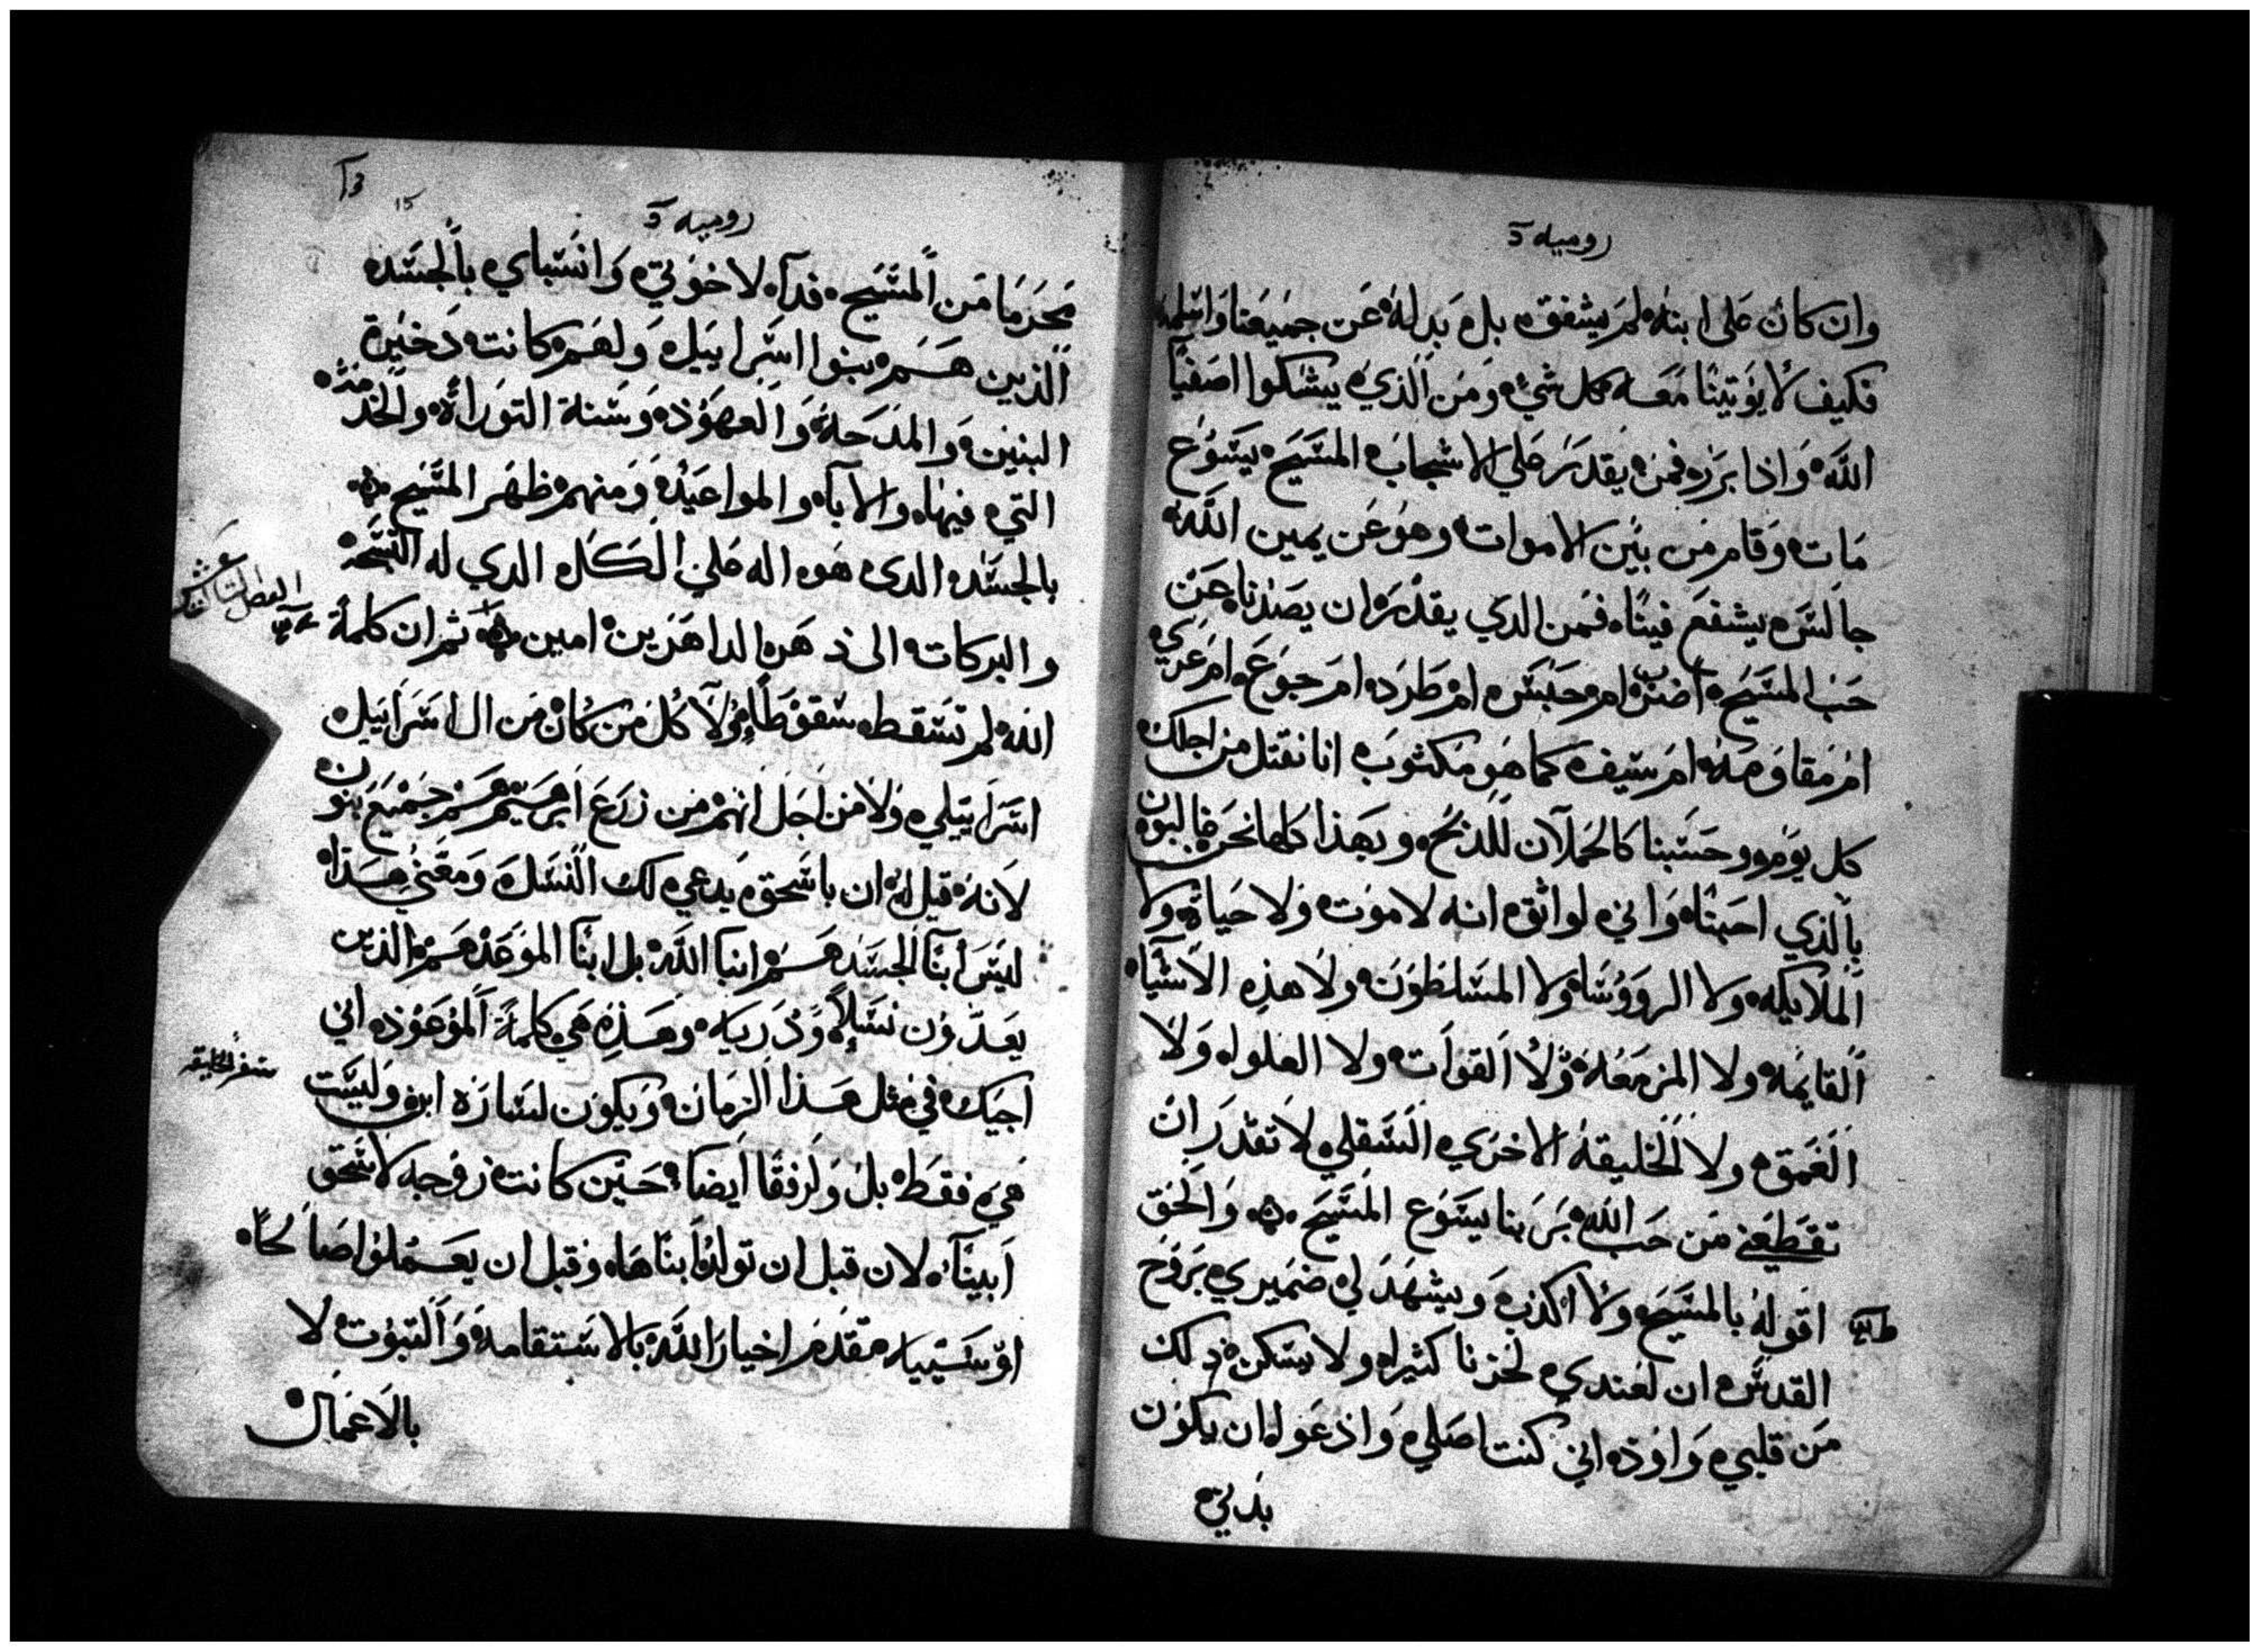 روميه آ
وان كان على ابنه لم يشفق بل بدله عن جميعنا واسلمه
فكيف لا يوتينا معه كل شي ومن الذي يشكوا اصفيا
الله واذا برر فمن يقدر على الاشجاب المسيح يسوع
مات وقام من بين الاموات وهو عن يمين الله
جالس يشفع فينا فمن الدي يقدر ان يصدنا عن
حب المسيح ام حبس ام طرد ام جوع ام عري
ام مقاومه ام سيف كما هو مكتوب انا نقتل من اجلك
كل يوم وحسبنا كالحملان للذبح وبهذا كلها نحن غالبون
بالذي احبنا واني لواثق انه لا موت ولا حياة ولا
الملايكه ولا الرووسا ولا المسلطون ولا هذه الاشيا
القايمه ولا المزمعه ولا القوات ولا العلو ولا
الغمق ولا الخليقه الاخري السفلي لا تقدر ان
تقطعني من حب الله بربنا يسوع المسيح والحق
اقول بالمسيح ولا اكذب ويشهد لي ضميري بروح
القدس ان لعندي لحزنا كثيرا ولا يسكن ذلك
من قلبي واود اني كنت اصلي وادعوا ان يكون
بدني
روميه آ
15
محرما من المسيح فدآ لاخوتي وانسباي بالجسد
الذين هم بنوا اسراييل ولهم كانت دخيرة
البنين والمدحة والعهود وسنة التوراة والخدمة
التي فيها والابآ والمواعيد ومنهم ظهر المسيح
بالجسد الدى هو اله على الكل الدي له التسبحه
والبركات الى دهر الداهرين امين ثم ان كلمة
الله لم تسقط سقوطا ولا كل من كان من ال اسراييل
اسراييلي ولا من اجل انهم من زرع ابرهيم هم جميع بنون
لانه قيل له ان باسحق يدعي لك النسل ومعني هذا
ليس ابنآ الجسد هم ابنا الله بل ابنآ الموعد هم الذين
يعدون نسلا ودريه وهذه هي كلمة الموعود اني
اجيك في مثل هذا الزمان ويكون لساره ابن وليست
سفر الخليقه
هي فقط بل ولرفقا ايضا حين كانت زوجه لاسحق
ابينآ لان قبل ان تولد ابناها وقبل ان يعملوا صالحا
او سييا متقدم اخيار الله بالاستقامه والتبوت لا
بالاعمال